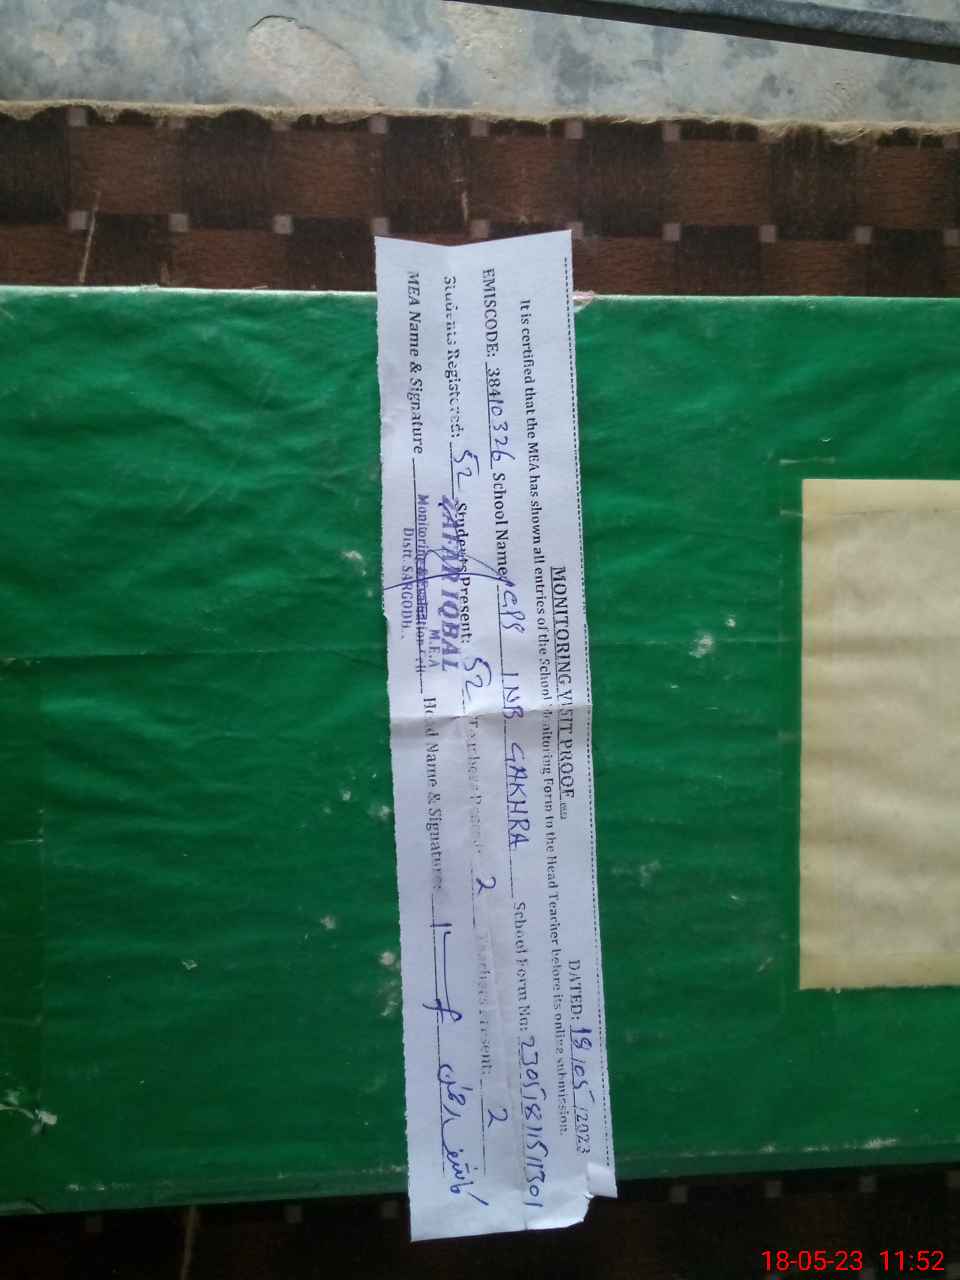 MONITORING VISIT PROOF
DATED: 18/05/2023
It is certified that the MEA has shown all entries of the School Monitoring Form to the Head Teacher before its online submission.
EMISCODE: 38410326 School Name: GPS INB GAKHRA School Form No: 230518151301
Students Registered: 52 Students Present: 52 Teachers Posted: 2 Teachers Present: 2
MEA Name & Signature Head Name & Signature
ZAFAR IQBAL
M.E.A
Monitoring & Evaluation Cell
Distt. SARGODHA.
18-05-23 11:52